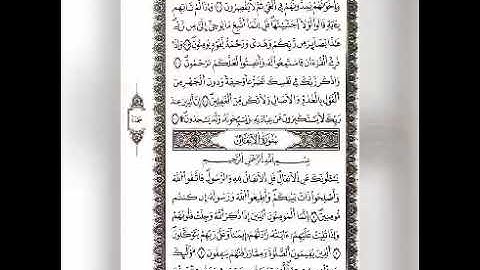 وَإِخْوَٰنُهُمْ يَمُدُّونَهُمْ فِى ٱلْغَىِّ ثُمَّ لَا يُقْصِرُونَ ۝ وَإِذَا لَمْ تَأْتِهِم
بِـَٔايَةٍ قَالُوا۟ لَوْلَا ٱجْتَبَيْتَهَا قُلْ إِنَّمَآ أَتَّبِعُ مَا يُوحَىٰٓ إِلَىَّ مِن رَّبِّى
هَٰذَا بَصَآئِرُ مِن رَّبِّكُمْ وَهُدًى وَرَحْمَةٌ لِّقَوْمٍ يُؤْمِنُونَ ۝ وَإِذَا
قُرِئَ ٱلْقُرْءَانُ فَٱسْتَمِعُوا۟ لَهُۥ وَأَنصِتُوا۟ لَعَلَّكُمْ تُرْحَمُونَ ۝
وَٱذْكُر رَّبَّكَ فِى نَفْسِكَ تَضَرُّعًا وَخِيفَةً وَدُونَ ٱلْجَهْرِ مِنَ
ٱلْقَوْلِ بِٱلْغُدُوِّ وَٱلْءَاصَالِ وَلَا تَكُن مِّنَ ٱلْغَٰفِلِينَ ۝ إِنَّ ٱلَّذِينَ عِندَ
رَبِّكَ لَا يَسْتَكْبِرُونَ عَنْ عِبَادَتِهِۦ وَيُسَبِّحُونَهُۥ وَلَهُۥ يَسْجُدُونَ ۝
سُورَةُ الْأَنفَالِ
بِسْمِ ٱللَّهِ ٱلرَّحْمَٰنِ ٱلرَّحِيمِ
يَسْـَٔلُونَكَ عَنِ ٱلْأَنفَالِ قُلِ ٱلْأَنفَالُ لِلَّهِ وَٱلرَّسُولِ فَٱتَّقُوا۟ ٱللَّهَ
وَأَصْلِحُوا۟ ذَاتَ بَيْنِكُمْ وَأَطِيعُوا۟ ٱللَّهَ وَرَسُولَهُۥٓ إِن كُنتُم
مُّؤْمِنِينَ ۝ إِنَّمَا ٱلْمُؤْمِنُونَ ٱلَّذِينَ إِذَا ذُكِرَ ٱللَّهُ وَجِلَتْ قُلُوبُهُمْ
وَإِذَا تُلِيَتْ عَلَيْهِمْ ءَايَٰتُهُۥ زَادَتْهُمْ إِيمَٰنًا وَعَلَىٰ رَبِّهِمْ يَتَوَكَّلُونَ ۝
ٱلَّذِينَ يُقِيمُونَ ٱلصَّلَوٰةَ وَمِمَّا رَزَقْنَٰهُمْ يُنفِقُونَ ۝ أُو۟لَٰٓئِكَ